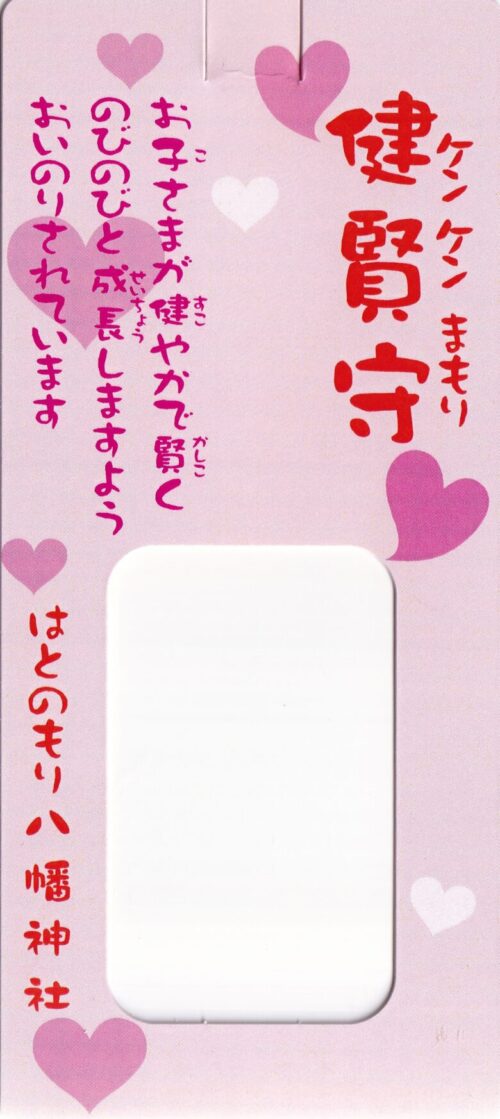 健賢守
ケンケンまもり
お子さまが健やかで賢く
こ
すこ
かしこ
のびのびと成長しますよう
せいちょう
おいのりされています
はとのもり八幡神社